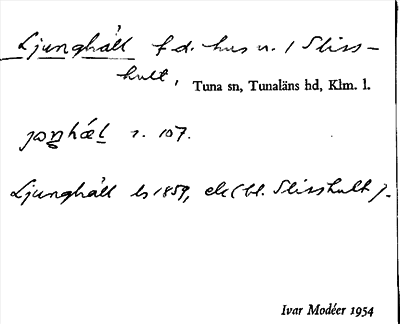 Ljunghäll f.d. hus u. / Sliss-
hult, Tuna sn, Tunaläns hd, Klm. l.
s. 107.
Ljunghäll ls 1859, ek (bl. Slisshult).
Ivar Modéer 1954